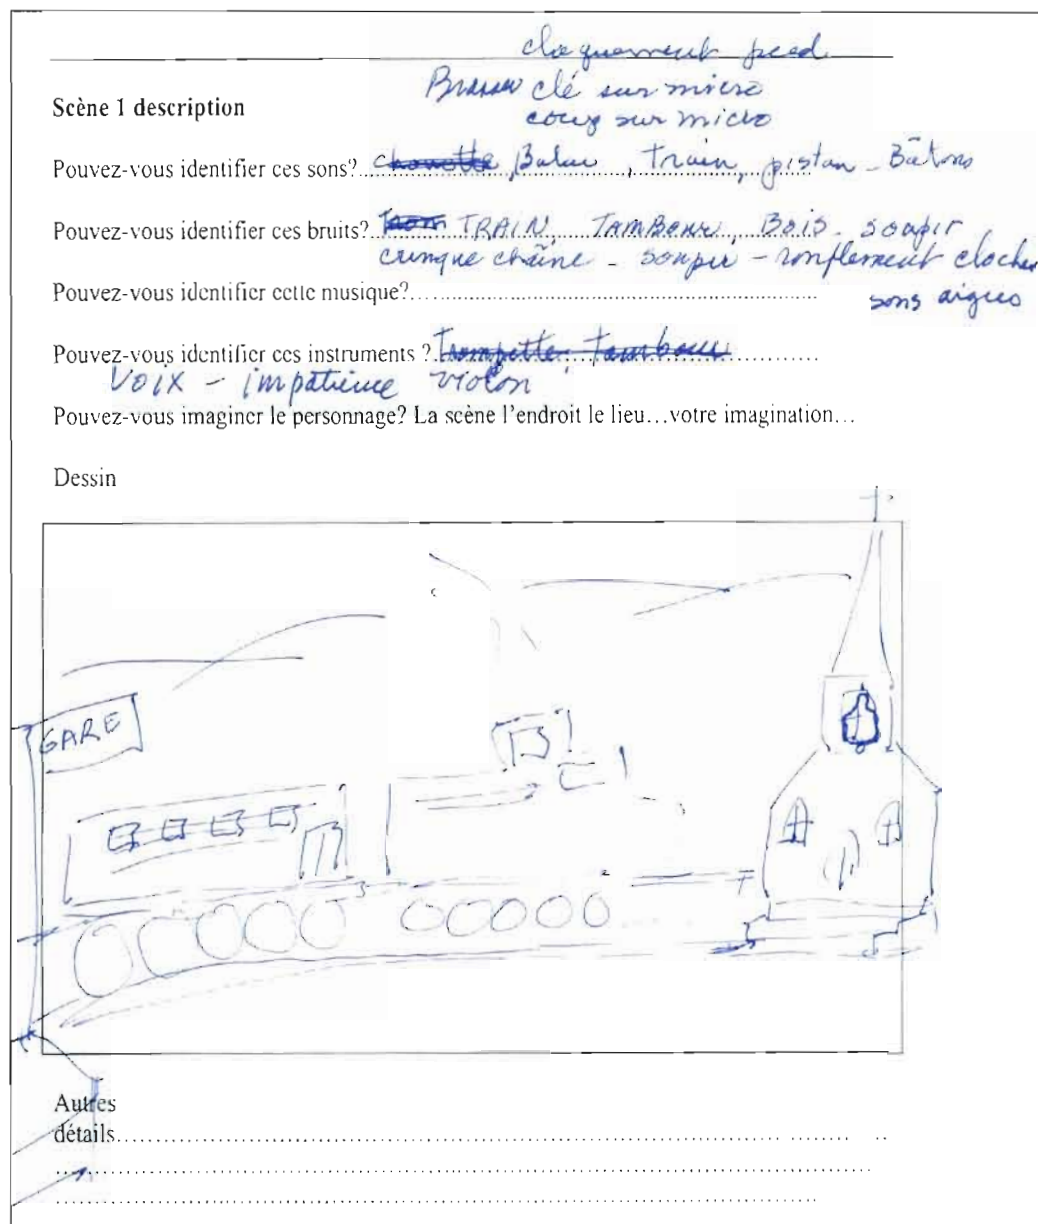 claquement pied
Brasser clé sur micro
coup sur micro
Scène 1 description
Pouvez-vous identifier ces sons? chouette, Train, piston - Bâtons
Pouvez-vous identifier ces bruits? TRAIN, TAMBOUR, Bois - soupir
crinque chaîne - soupir - ronflement cloches
Pouvez-vous identifier cette musique? sons aigues
Pouvez-vous identifier ces instruments ? Trompette, tambour
Voix - impatience violon
Pouvez-vous imaginer le personnage? La scène l'endroit le lieu...votre imagination...
Dessin
GARE
Autres
détails